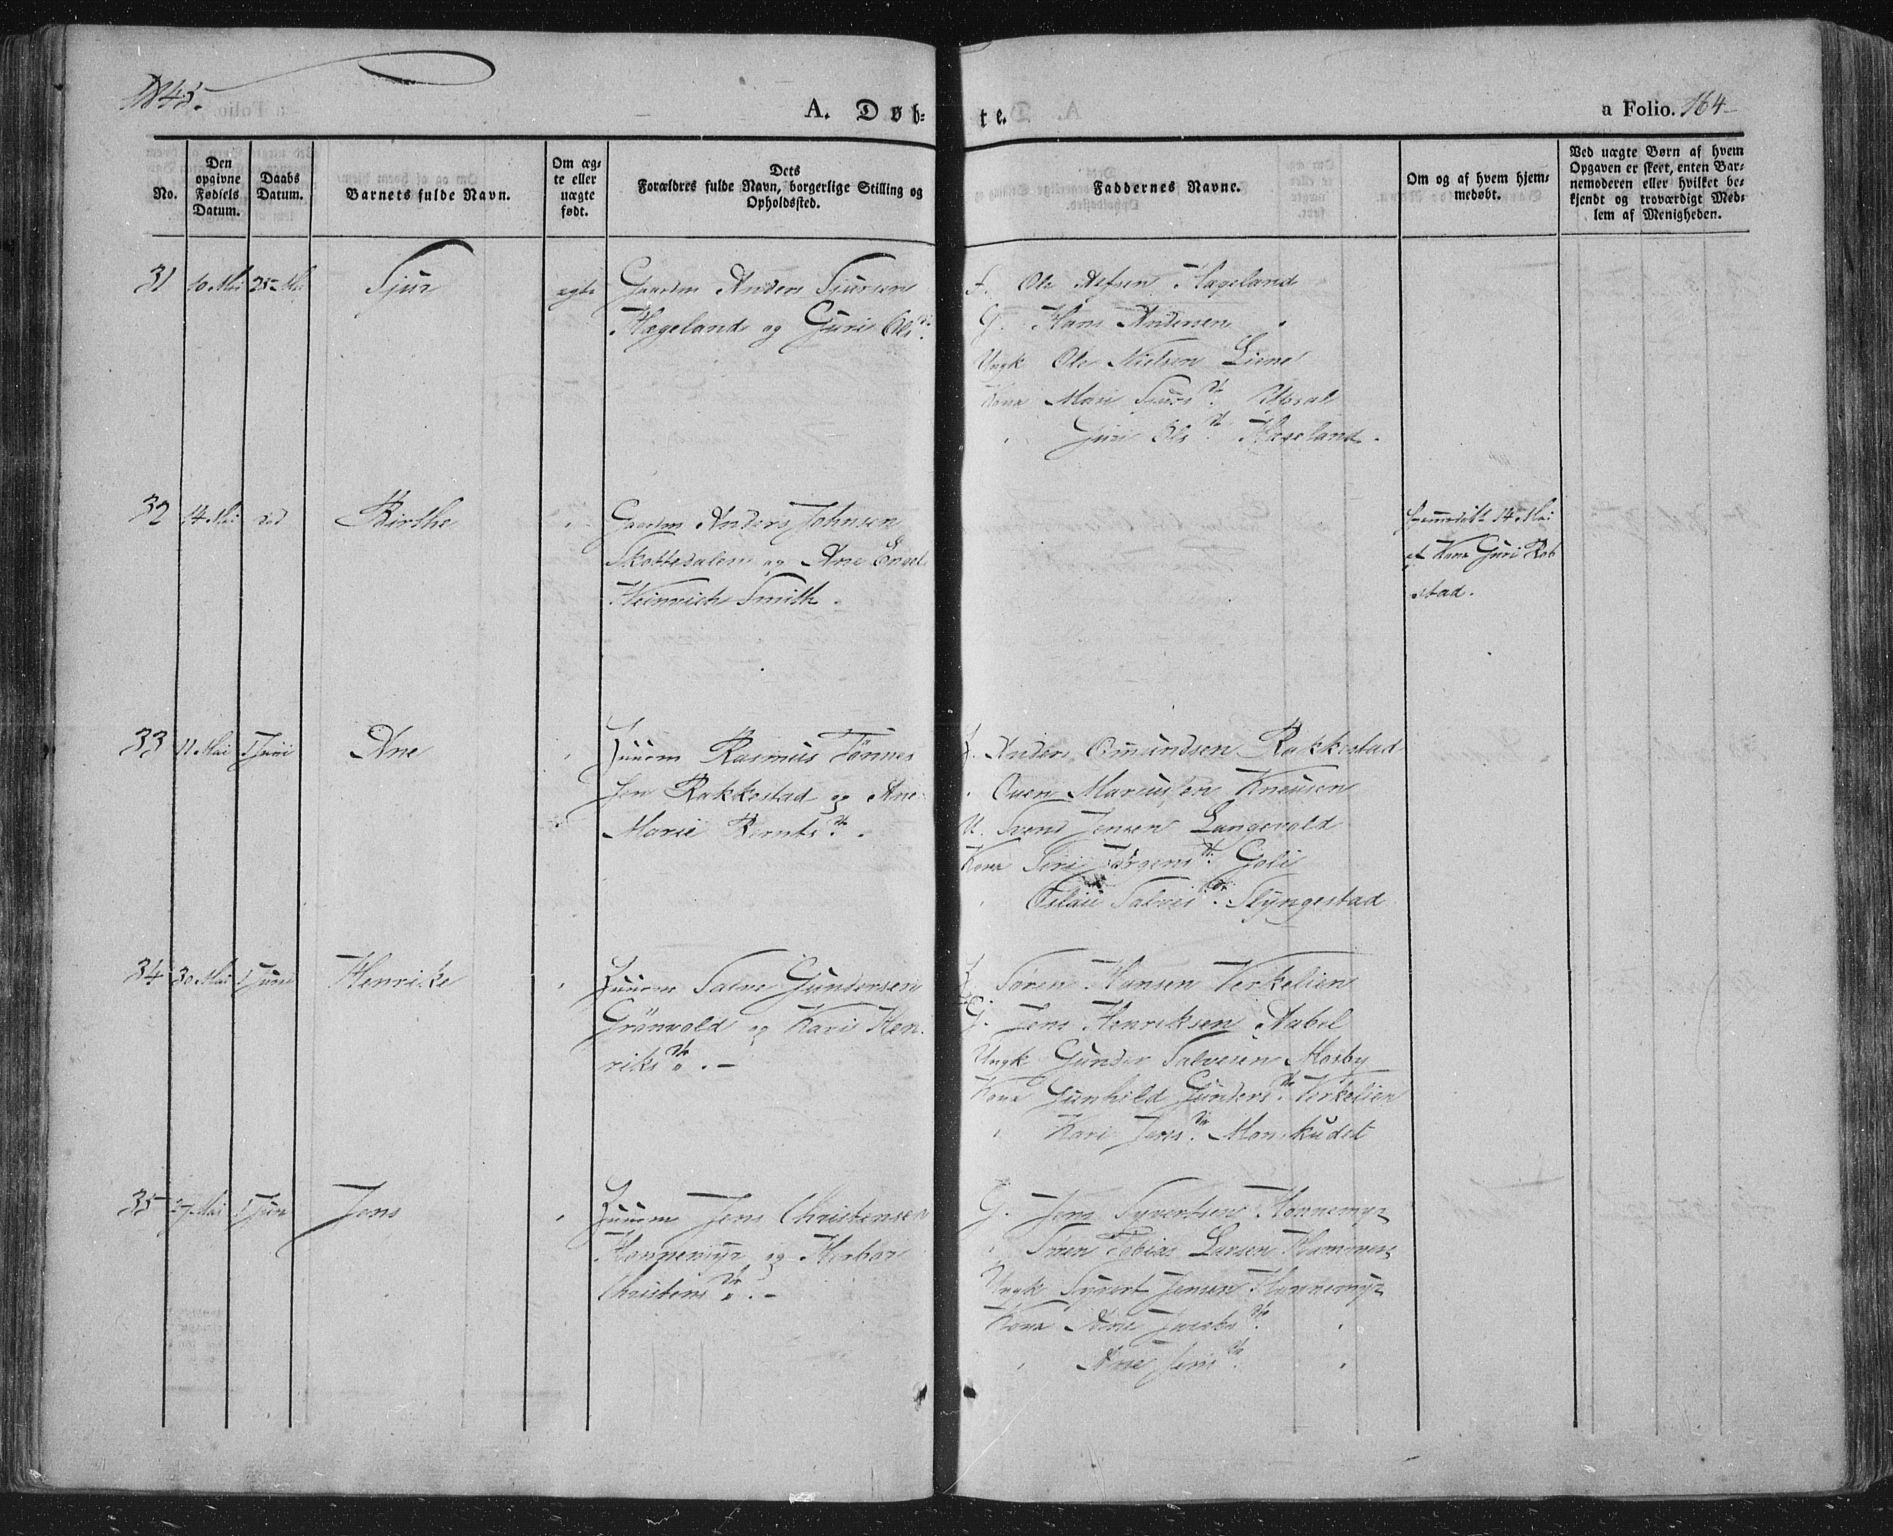 1845.
A. Døb-
te.
a Folio. 164
No.
Den opgivne Fødsels Datum.
Daabs Datum.
Barnets fulde Navn.
Om æg-te eller uægte født.
Dets Forældres fulde Navn, borgerlige Stilling og Opholdssted.
Faddernes Navne.
Om og af hvem hjem-medøbt.
Ved uægte Børn af hvem Opgaven er skeet, enten Bar-nemoderen eller hvilket be-kjendt og troværdigt Med-lem af Menigheden.
31 10 Mai 25 Mai Sjur ægte Gaardm Anders Sjursen
Hægeland og Guri Olsdr.
F. Ole Hægeland
G. Hans Andersen
Ungk Ole Nielsen Liene
Kona Mari Sjursdr. Upsal
Guri Olsdr. Hægeland.
32 14 Mai Birthe Gaardm Anders Johnsen
Skottedalen og Ane Engel
Heinrich Smith.
hjemmedøbt 14 Mai
af Kona Guri Rob
stad.
33 11 Mai 1 Juni Ane Huusm Rasmus Tønnes
sen Rakkestad og Ane
Marie Berntsdr.
H. Anders Omundsen Rakkestad
Ouen Kneusen
U. Svend Jensen Langevold
Kona Siri Jørgensdr.
Salvesdr. Slyngestad
34 30 Mai 1 Juni Henrike Huusm Salve Gundersen
Grønvold og Kari Hen
riksdr. -
H. Søren Hansen Verkelien
G. Jens Henriksen Aabel
Ungk Gunder Salvesen Mosby
Kona Gunhild Gundersdr. Verkelien
Kari Jensdr.
35 27 Mai 1 Juni Jens Huusm Jens Christensen
Honnemyr og
Christensdr. -
G. Jens Syvertsen Honnemyr
Søren Tobias Larsen Hammen
Ungk Syvert Jensen Honnemyr
Kona Ane Jacobsdr.
Ane Jensdr.